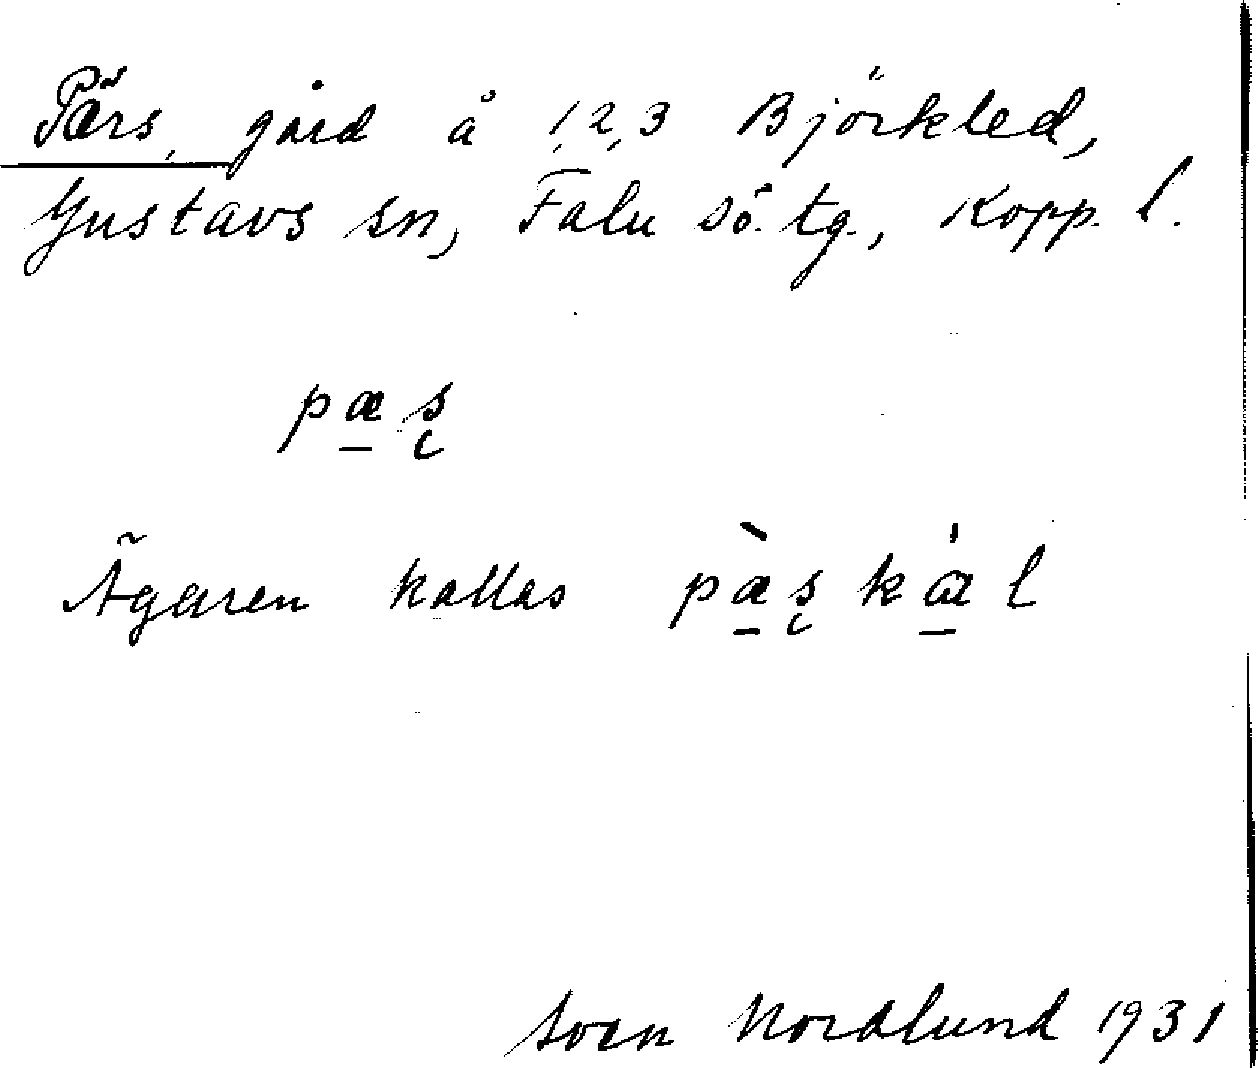 Pärs, gård å 1,2,3 Björkled,
Gustavs sn, Falu sö. tg., Kopp. l.
pæ̱ s̨
Ägaren kallas pæ̱̀s̨kǽ̱l
Sven Nordlund 1931